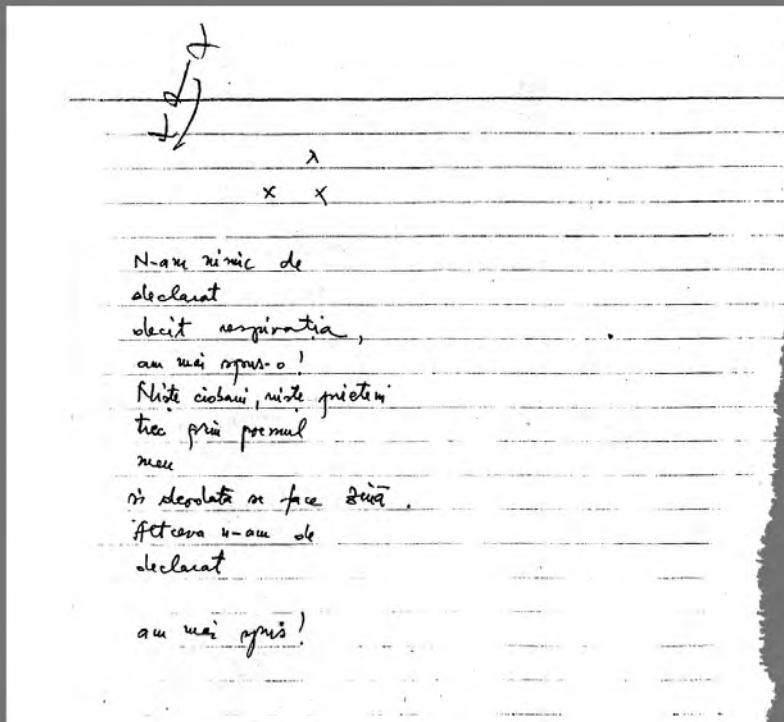 x
x x
N-am nimic de
declarat
decît respirația,
am mai spus-o!
Niște ciobani, niște prieteni
trec prin poemul
meu
și deodată se face
Altceva n-am de
declarat
am mai spus!